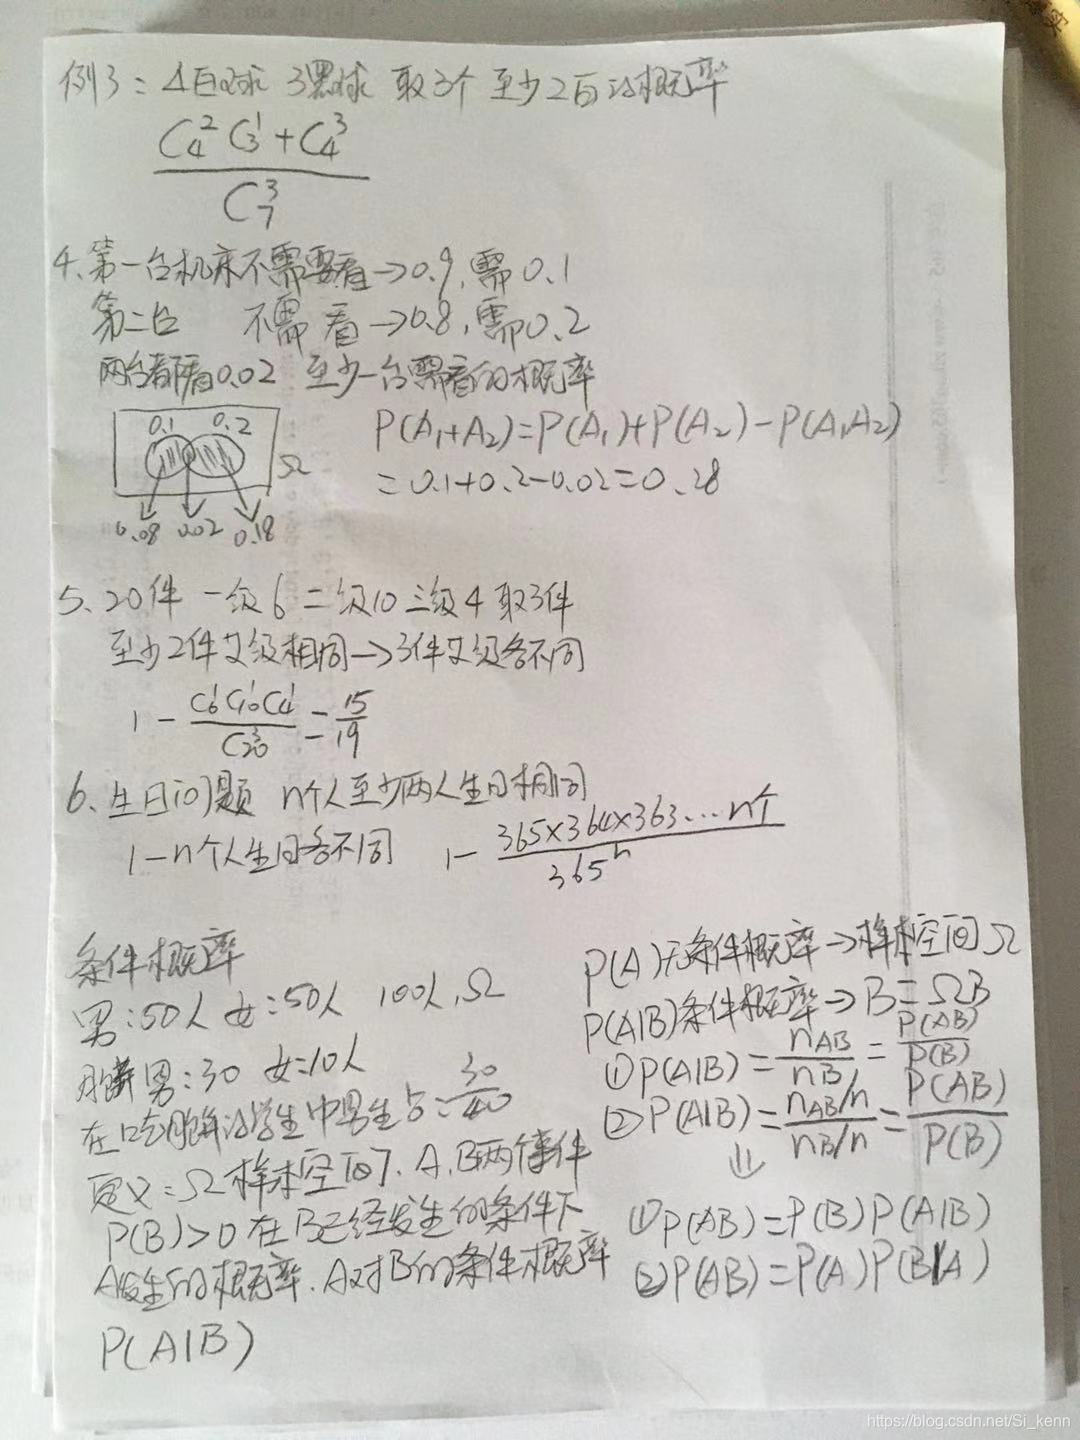 例3：4白球 3黑球 取3个 至少2白的概率
C₄² C₃¹ + C₄³
C₇³
4、第一台机床不需要看→0.9，需0.1
第二台 不需看→0.8，需0.2
两台都看0.02 至少一台需看的概率
0.1 0.2
Ω
0.08 0.02 0.18
P(A₁+A₂)=P(A₁)+P(A₂)-P(A₁A₂)
=0.1+0.2-0.02=0.28
5、20件 一级6 二级10 三级4 取3件
至少2件等级相同→3件等级各不同
1 - C₆¹C₁₀¹C₄¹ / C₂₀³ = 15/19
6、生日问题 n个人至少两人生日相同
1-n个人生日各不同 1- 365×364×363…n个 / 365ⁿ
条件概率
男：50人 女：50人 100人，Ω
男：30 女：10人
学生中男生占=30/40
定义：Ω样本空间，A、B两个事件
P(B)>0 在B已经发生的条件下
A发生的概率，A对B的条件概率
P(A|B)
P(A)无条件概率→样本空间Ω
P(A|B)条件概率→B=ΩB
①P(A|B)=nAB/nB=P(AB)/P(B)
②P(A|B)=(nAB/n)/(nB/n)=P(AB)/P(B)
⇓
①P(AB)=P(B)P(A|B)
②P(AB)=P(A)P(B|A)
https://blog.csdn.net/Si_kenn